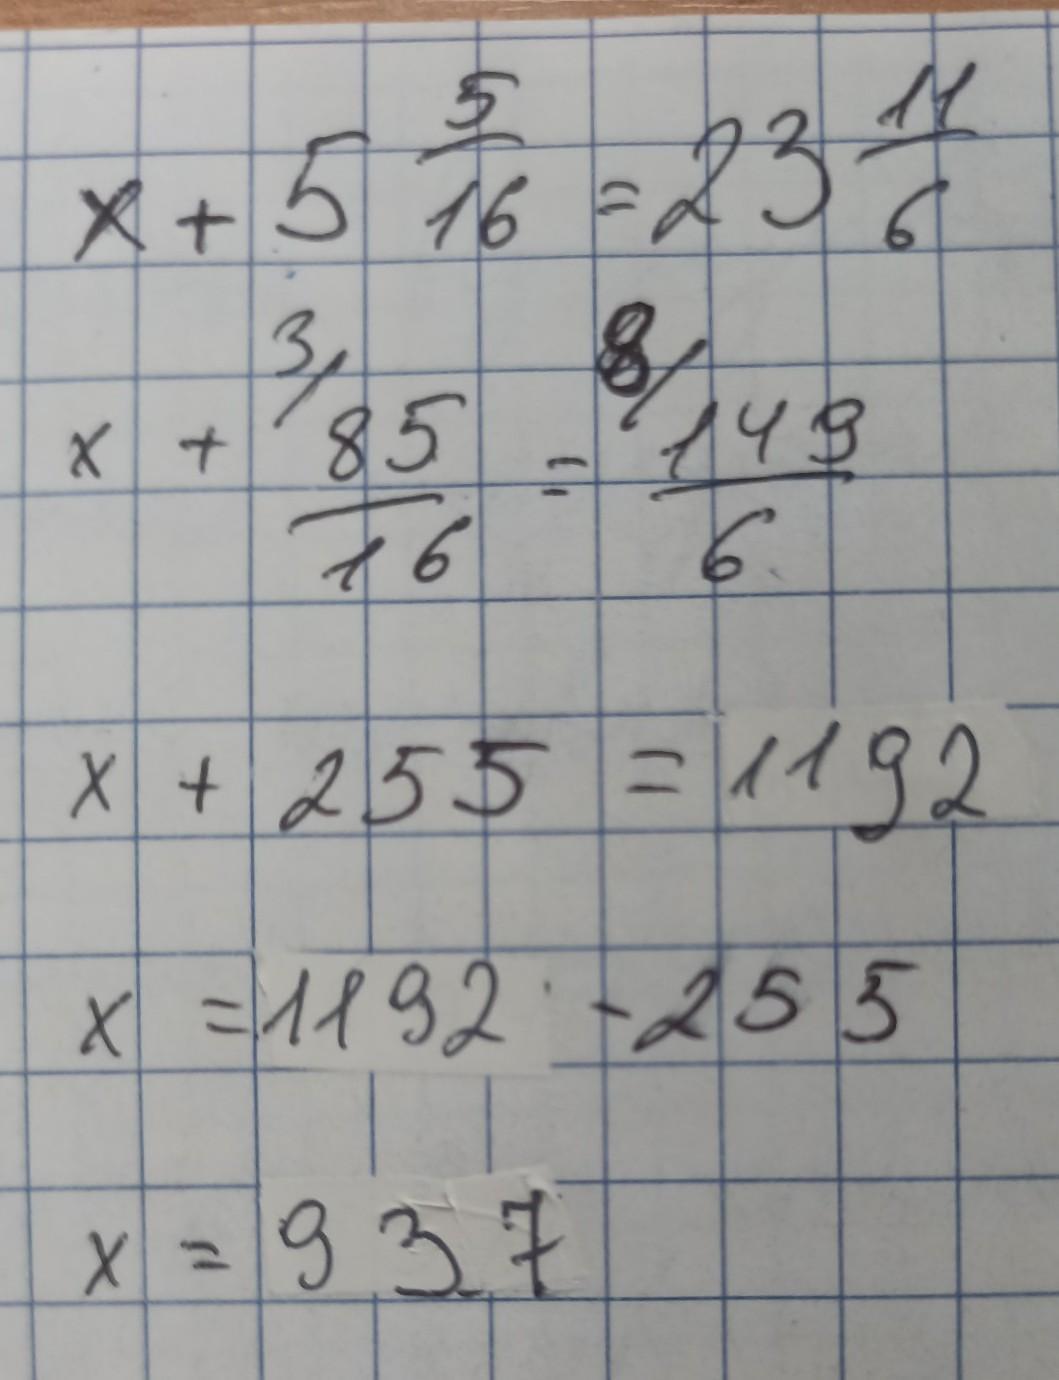 x + 5 5/16 = 23 11/6
x + 3/ 85/16 = 8/ 149/6
x + 255 = 1192
x = 1192 - 255
x = 937